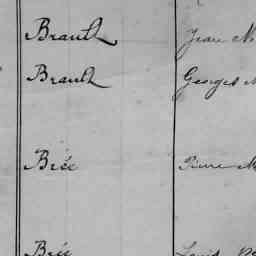 Brault Jean M
Brault Georges
Brée Pierre M
Brée Louis